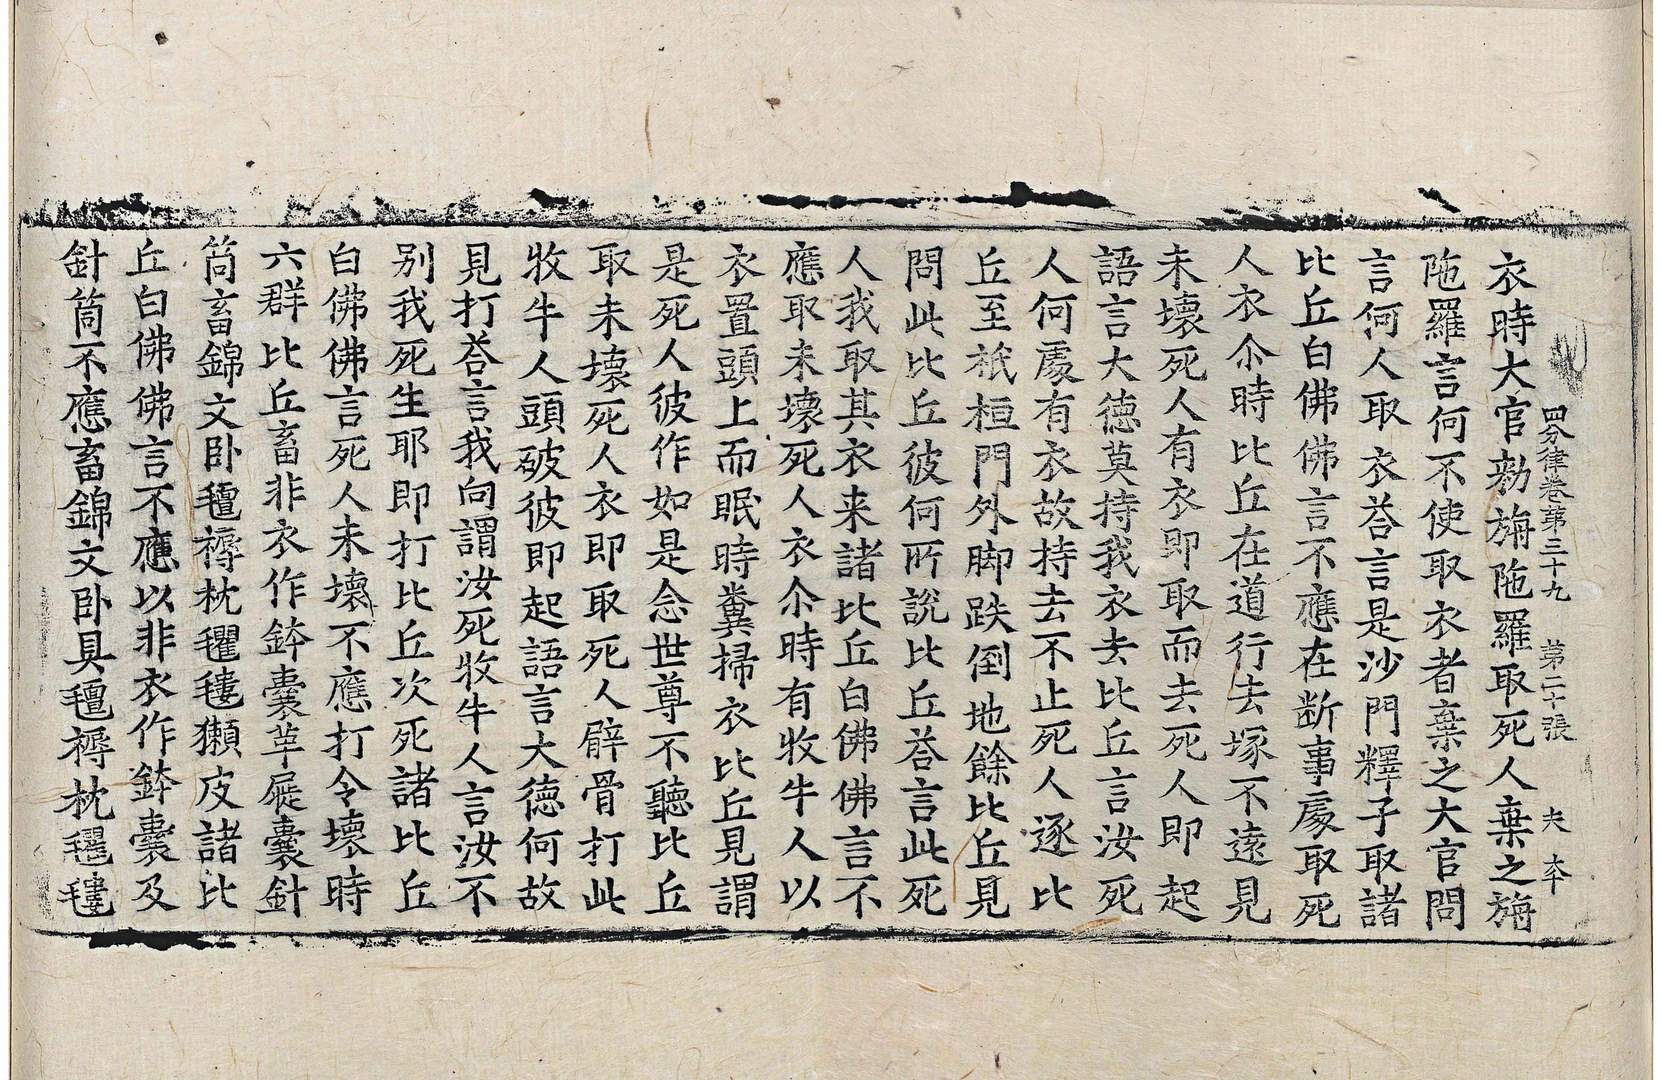 四分律卷第三十九　第二十張　夫
衣時大官勑旃陁羅取死人棄之旃
陁羅言何不使取衣者棄之大官問
言何人取衣荅言是沙門釋子取諸
比丘白佛佛言不應在断事處取死
人衣尒時比丘在道行去塚不遠見
未壞死人有衣即取而去死人即起
語言大德莫持我衣去比丘言汝死
人何處有衣故持去不止死人逐比
丘至祇桓門外脚跌倒地餘比丘見
問此比丘彼何所說比丘荅言此死
人我取其衣来諸比丘白佛佛言不
應取未壞死人衣尒時有牧牛人以
衣置頭上而眠時糞掃衣比丘見謂
是死人彼作如是念世尊不聽比丘
取未壞死人衣即取死人臂骨打此
牧牛人頭破彼即起語言大德何故
見打荅言我向謂汝死牧牛人言汝不
别我死生耶即打比丘次死諸比丘
白佛佛言死人未壞不應打令壞時
六群比丘畜非衣作鉢囊革屣囊針
筒畜錦文卧氊褥枕氍氀獺皮諸比
丘白佛佛言不應以非衣作鉢囊及
針筒不應畜錦文卧具氊褥枕氍氀